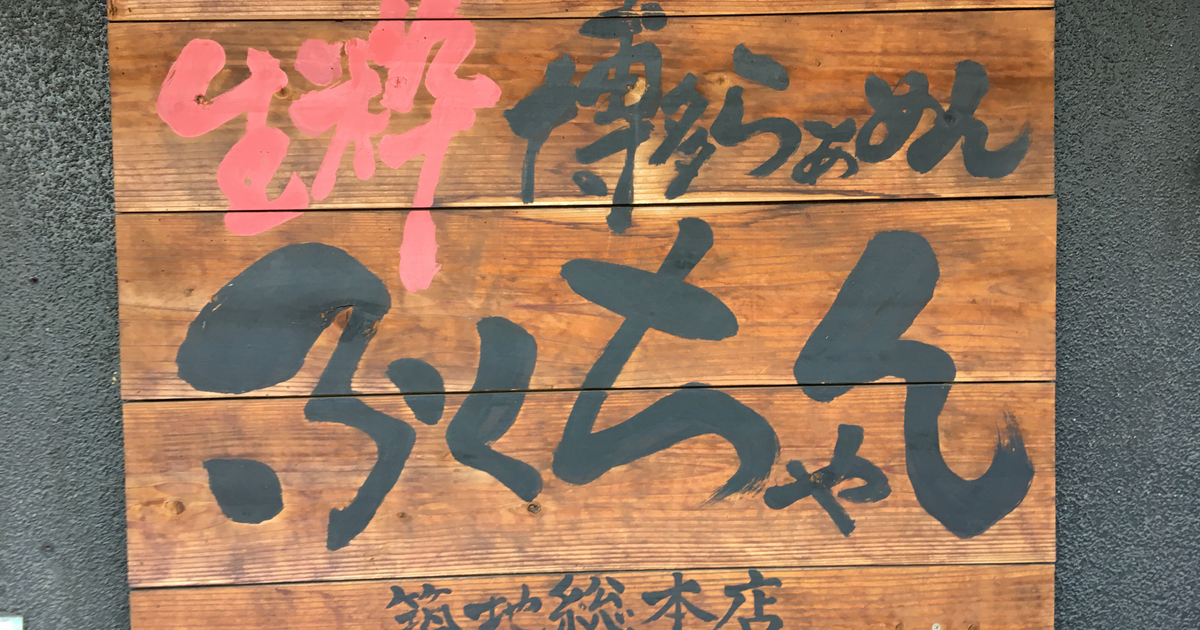 生粋 博多らぁめん
ふくちゃん
築地総本店